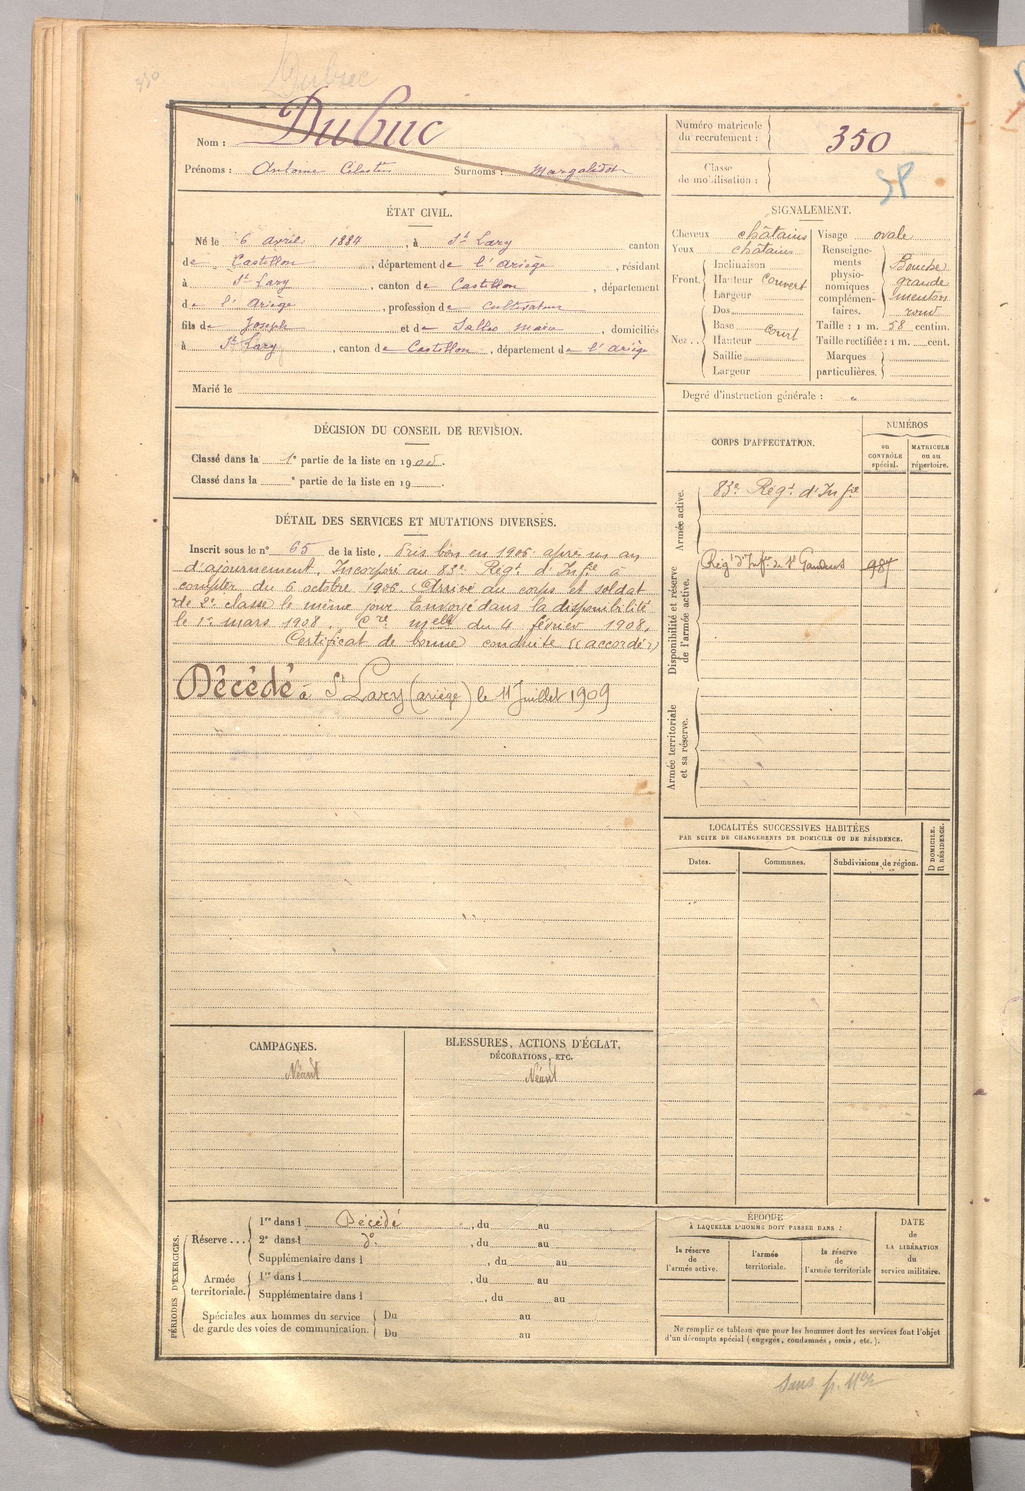 350
Dubuc
Nom : Dubuc
Prénoms : Antoine Célestin Surnoms : Margalidon
Numéro matricule du recrutement : 350
Classe de mobilisation :
SP
ÉTAT CIVIL.
Né le 6 avril 1884, à St Lary canton
de Castillon, département de l'Ariège, résidant
à St Lary, canton de Castillon, département
de l'Ariège, profession de Cultivateur
fils de Joseph et de Salles Marie, domiciliés
à St Lary, canton de Castillon, département de l'Ariège
Marié le
SIGNALEMENT.
Cheveux châtains
Yeux châtains
Front. Inclinaison
Hauteur Couvert
Largeur
Nez.. Dos
Base Court
Hauteur
Saillie
Largeur
Visage ovale
Renseignements physionomiques complémentaires. Bouche grande menton rond
Taille : 1 m. 58 centim.
Taille rectifiée : 1 m. cent.
Marques particulières.
Degré d'instruction générale : "
DÉCISION DU CONSEIL DE REVISION.
Classé dans la 1e partie de la liste en 1905.
Classé dans la e partie de la liste en 19
DÉTAIL DES SERVICES ET MUTATIONS DIVERSES.
Inscrit sous le n° 65 de la liste. Pris bon en 1906 après un an
d'ajournement. Incorporé au 83e Regt d'Infie à
compter du 6 octobre 1906. Arrivé au corps et soldat
de 2e classe le même jour. Envoyé dans la disponibilité
le 1er mars 1908. Cre melle du 4 février 1908.
Certificat de bonne conduite « accordé »
Décédé à St Lary (ariège) le 11 Juillet 1909
CORPS D'AFFECTATION.
NUMÉROS
au CONTRÔLE spécial.
MATRICULE ou au répertoire.
Armée active.
83e Regt d'Infie
Disponibilité et réserve de l'armée active.
Regt d'Infie de St Gaudens 987
Armée territoriale et sa réserve.
LOCALITÉS SUCCESSIVES HABITÉES
PAR SUITE DE CHANGEMENTS DE DOMICILE OU DE RÉSIDENCE.
Dates. Communes. Subdivisions de région.
D DOMICILE. R RÉSIDENCE.
CAMPAGNES.
Néant
BLESSURES, ACTIONS D'ÉCLAT,
DÉCORATIONS, ETC.
Néant
PÉRIODES D'EXERCICES.
Réserve... 1re dans l Décédé, du au
2e dans l do, du au
Supplémentaire dans l , du au
Armée territoriale. 1re dans l , du au
Supplémentaire dans l , du au
Spéciales aux hommes du service de garde des voies de communication. Du au
Du au
ÉPOQUE
À LAQUELLE L'HOMME DOIT PASSER DANS :
la réserve de l'armée active.
l'armée territoriale.
la réserve de l'armée territoriale
DATE de LA LIBÉRATION du service militaire.
Ne remplir ce tableau que pour les hommes dont les services font l'objet
d'un décompte spécial (engagés, condamnés, omis, etc.).